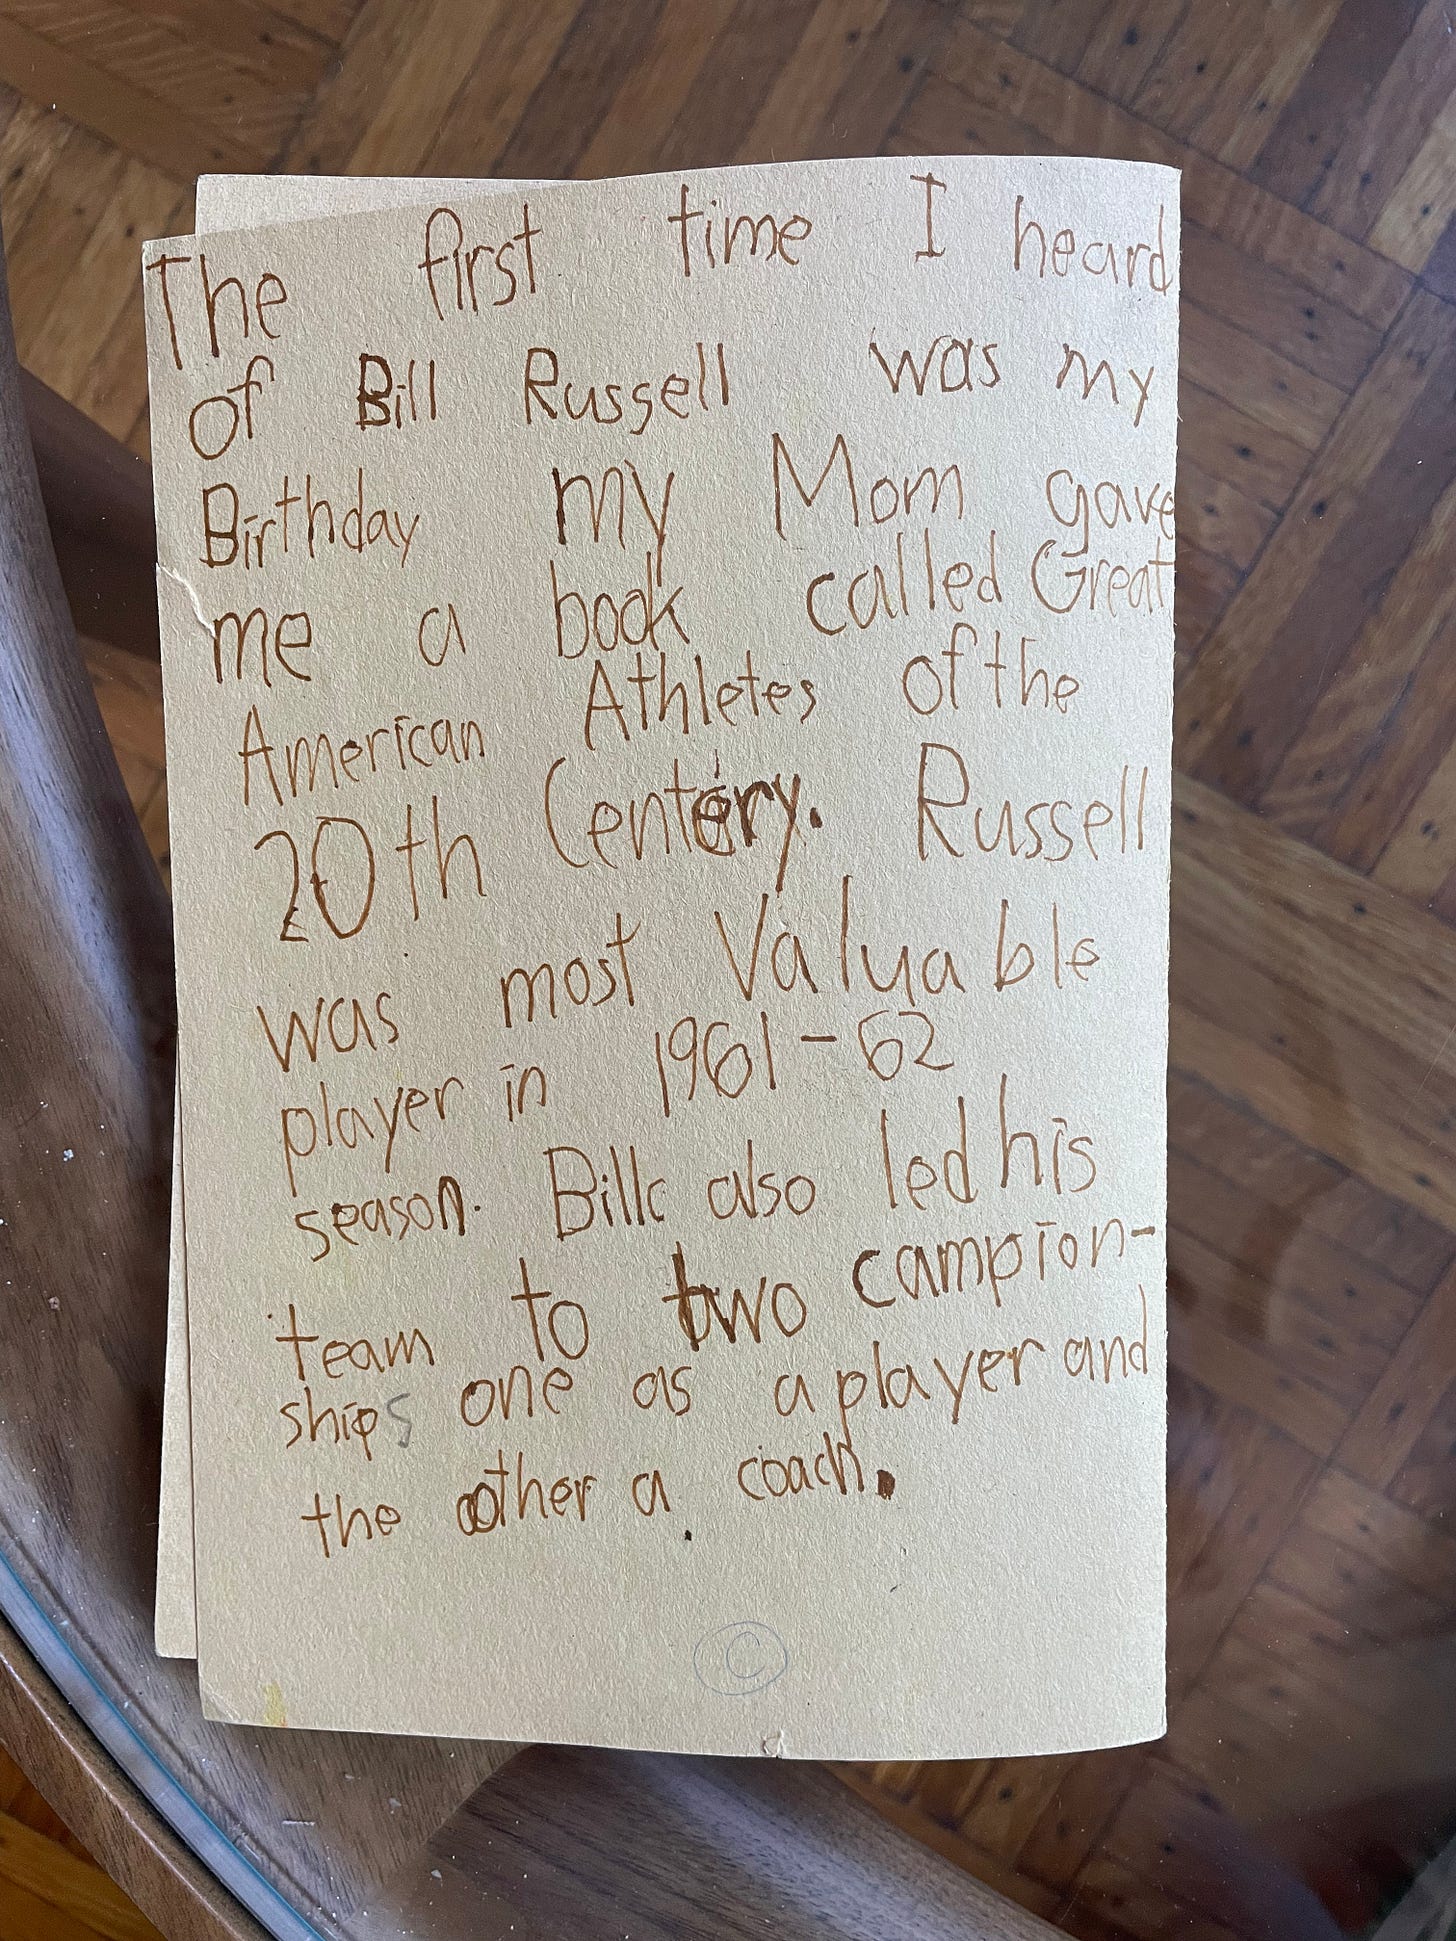 The first time I heard
of Bill Russell was my
Birthday my Mom gave
me a book called Great
American Athletes of the
20th Centery. Russell
was most Valuable
player in 1961-62
season. Billc also led his
team to two campion-
ships one as a player and
the other a coach.
C